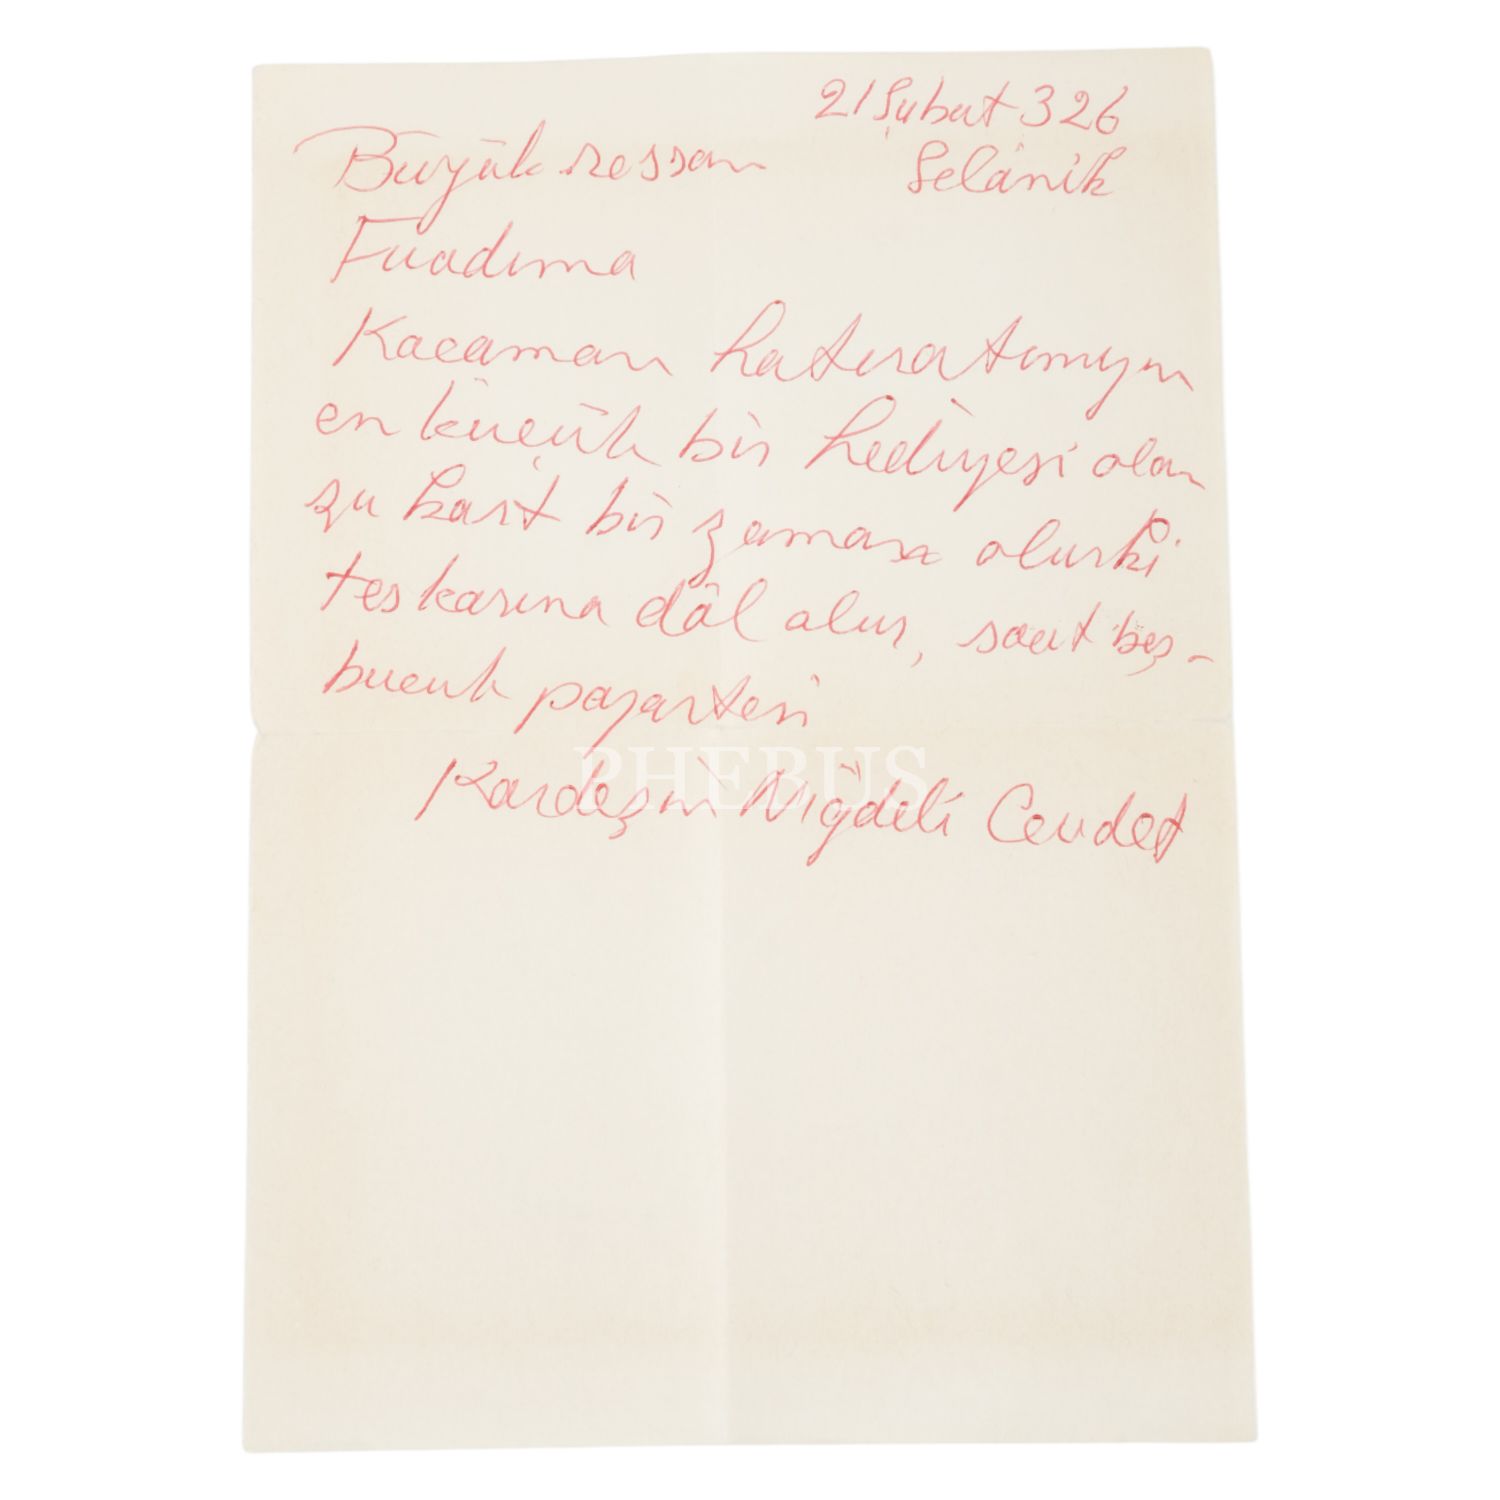 21 Şubat 326
Selânik
Büyük ressam
Fuadıma
Kocaman hatıratımın
en küçük bir hediyesi olan
şu kart bir zaman olurki
teskarına dâl olur, saat beş-
bucuk pazartesi
PHEBUS
Kardeşin Niğdeli Cevdet